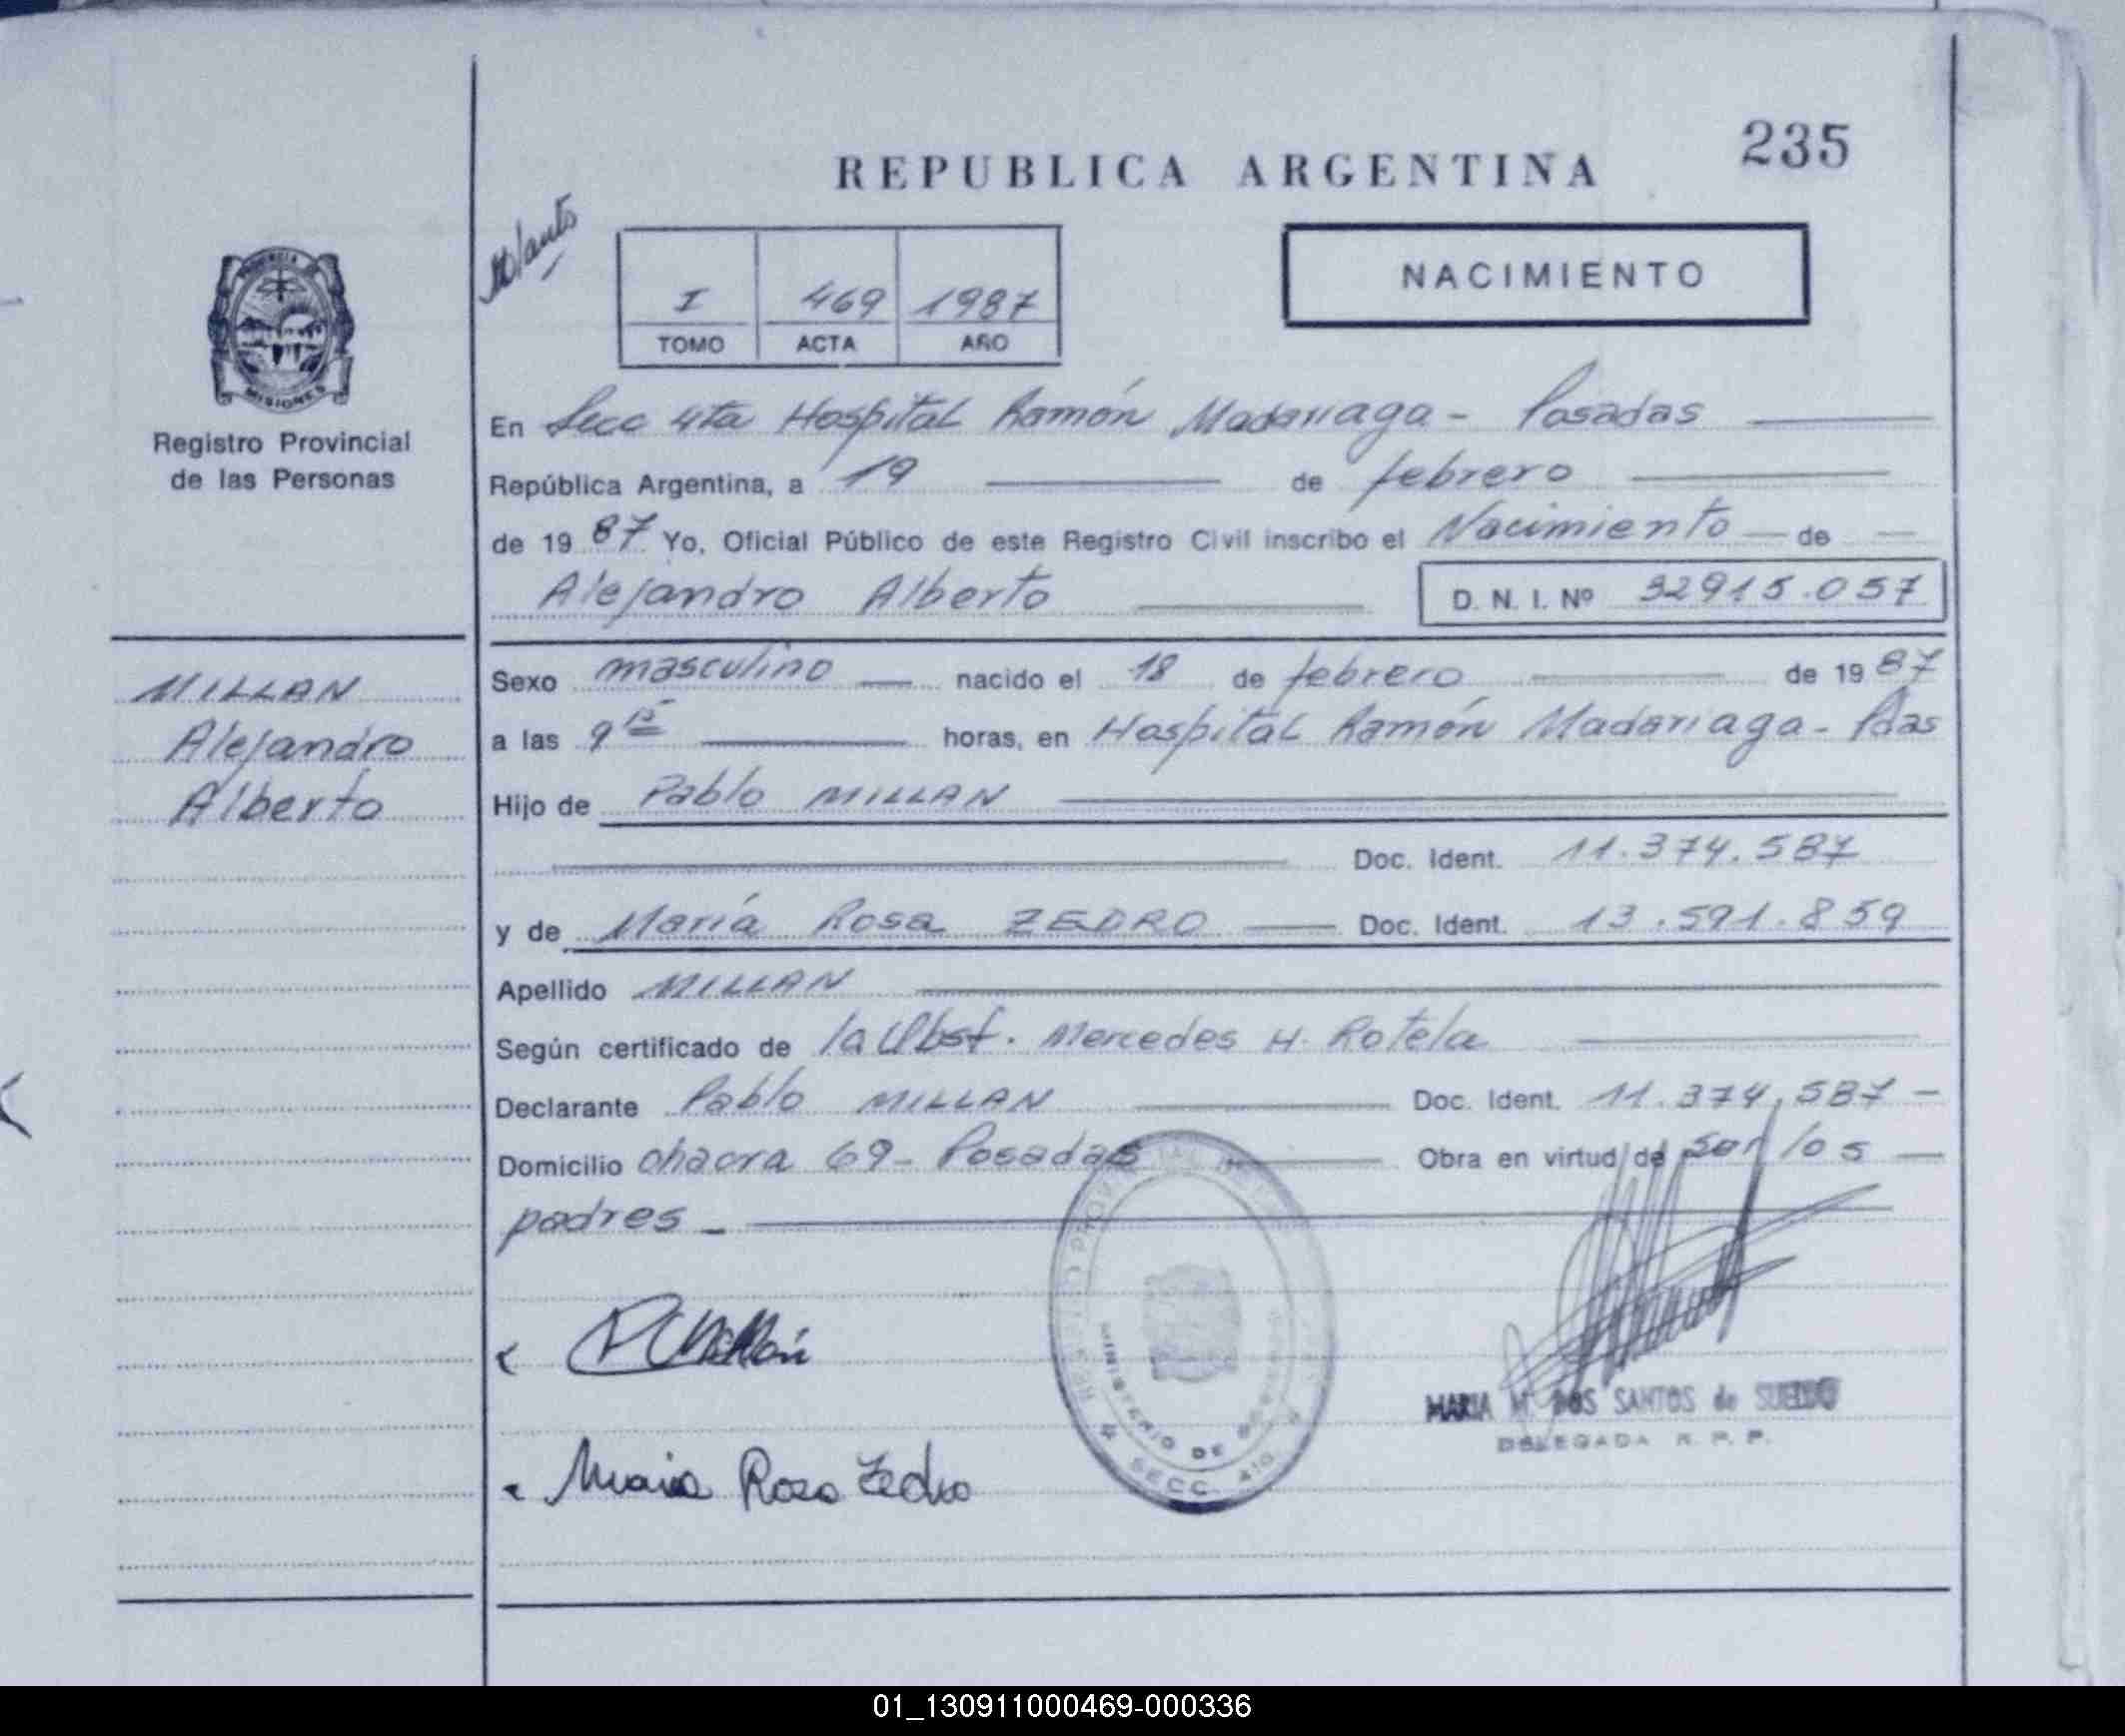 235
REPUBLICA ARGENTINA
NACIMIENTO
I 469 1987
TOMO ACTA AÑO
PROVINCIA DE
MISIONES
Registro Provincial
de las Personas
En Secc 4ta Hospital Ramón Madariaga - Posadas
República Argentina, a 19 de febrero
de 1987 Yo, Oficial Público de este Registro Civil inscribo el Nacimiento de
Alejandro Alberto D. N. I. Nº 32915.057
MILLAN
Alejandro
Alberto
Sexo masculino nacido el 18 de febrero de 1987
a las 9 15 horas, en Hospital Ramón Madariaga - Pdas
Hijo de Pablo MILLAN
Doc. Ident. 11.374.587
y de María Rosa ZEDRO Doc. Ident. 13.591.859
Apellido MILLAN
Según certificado de la Obst. Mercedes H. Rotela
Declarante Pablo MILLAN Doc. Ident. 11.374.587 -
Domicilio chacra 69 - Posadas Obra en virtud de ser los
padres -
REGISTRO PROVINCIAL DE LAS
MINISTERIO DE
SECC. 4ta
P Millán
MARIA M. DOS SANTOS de SUELDO
DELEGADA R. P. P.
Maria Rosa Zedro
01_130911000469-000336